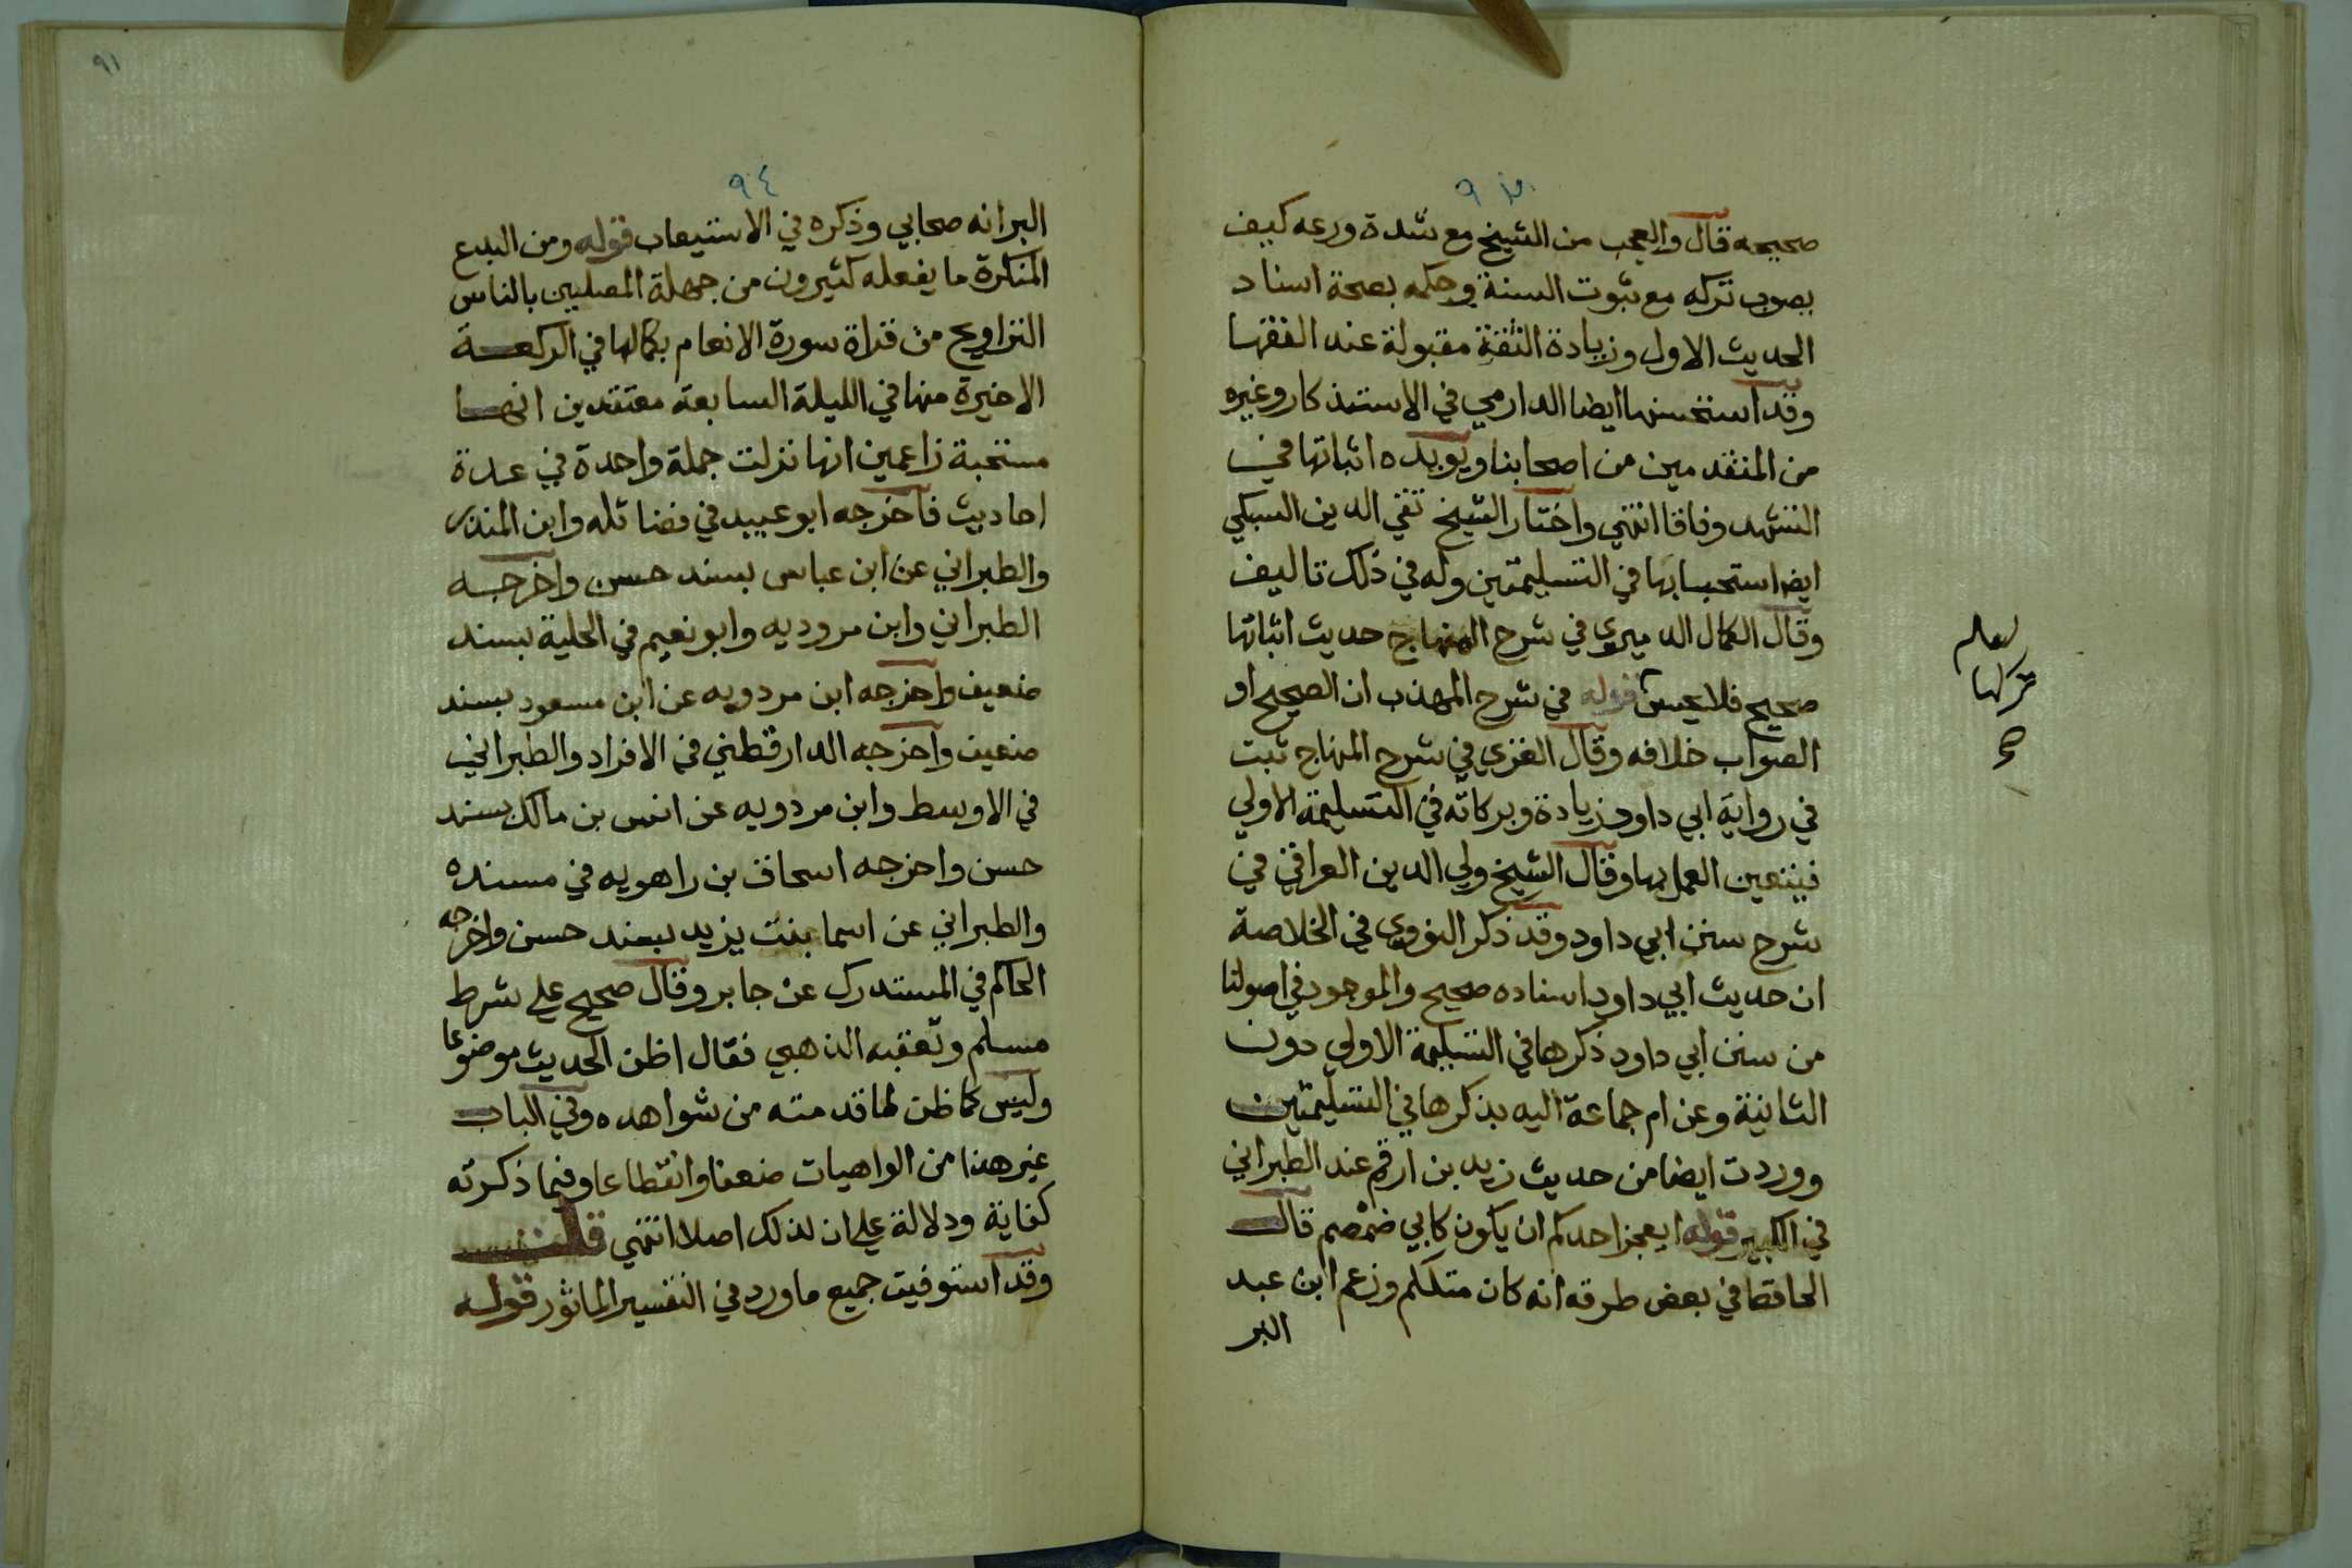 ٩٣
صحيحه قال والعجب من الشيخ مع شدة ورعه كيف
يصوب تركه مع ثبوت السنة وحكمه بصحة اسناد
الحديث الاول وزيادة الثقة مقبولة عند الفقها
وقد استحسنها ايضا الدارمي في الاستذكار وغيره
من المتقدمين من اصحابنا ويويده اثباتها في
التشهد وفاقا انتهي واختار الشيخ تقي الدين السبكي
ايضا استحبابها في التسليمتين وله في ذلك تاليف
وقال الكمال الدميري في شرح المنهاج حديث اثباتها
صحيح فلا يحسن قوله في شرح المهذب ان الصحيح او
الصواب خلافه وقال الغزي في شرح المنهاج ثبت
في رواية ابي داود زيادة وبركاته في التسليمة الاولي
فيتعين العمل بها وقال الشيخ ولي الدين العراقي في
شرح سنن ابي داود وقد ذكر النووي في الخلاصة
ان حديث ابي داود اسناده صحيح والموجود في اصولنا
من سنن ابي داود ذكرها في التسليمة الاولي دون
الثانية وعن ام جماعة اليه بذكرها في التسليمتين
ووردت ايضا من حديث زيد بن ارقم عند الطبراني
في الكبير قوله ايعجز احدكم ان يكون كابي ضمضم قال
الحافظ في بعض طرقه انه كان متكلم وزعم ابن عبد
البر
لعله
تركها
صح
٩١
٩٤
البر انه صحابي وذكره في الاستيعاب قوله ومن البدع
المنكرة ما يفعله كثيرون من جهلة المصليين بالناس
التراويح من قراة سورة الانعام بكمالها في الركعة
الاخيرة منها في الليلة السابعة معتقدين انها
مستحبة زاعمين انها نزلت جملة واحدة في عدة
احاديث فاخرجه ابو عبيد في فضائله وابن المنذر
والطبراني عن ابن عباس بسند حسن واخرجه
الطبراني وابن مروديه وابو نعيم في الحلية بسند
ضعيف واخرجه ابن مردويه عن ابن مسعود بسند
ضعيف واخرجه الدارقطني في الافراد والطبراني
في الاوسط وابن مردويه عن انس بن مالك بسند
حسن واخرجه اسحاق بن راهويه في مسنده
والطبراني عن اسما بنت يزيد بسند حسن واخرجه
الحاكم في المستدرك عن جابر وقال صحيح علي شرط
مسلم وتعقبه الذهبي فقال اظن الحديث موضوعا
وليس كما ظن لما قدمته من شواهده وفي الباب
غير هذا من الواهيات ضعفا وانقطاعا وفيما ذكرته
كفاية ودلالة علي ان لذلك اصلا انتهي قلت
وقد استوفيت جميع ما ورد في التفسير الماثور قوله